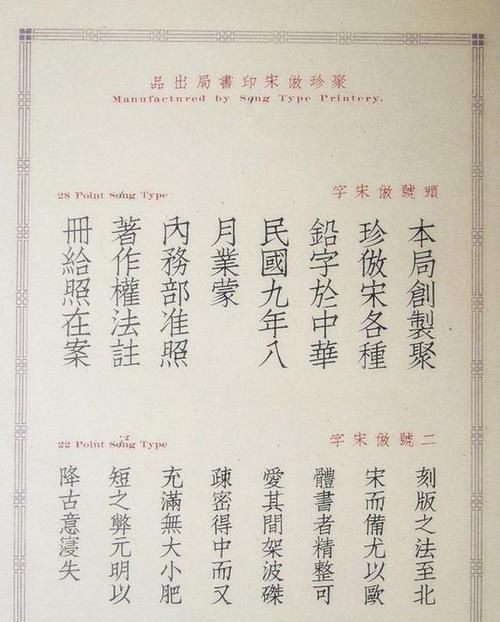 品出局書印宋倣珍聚
Manufactured by Song Type Printery.
28 Point Song Type
字宋倣號頭
本局創製聚
珍倣宋各種
鉛字於中華
民國九年八
月業蒙
內務部准照
著作權法註
冊給照在案
22 Point Song Type
字宋倣號二
刻版之法至北
宋而備尤以歐
體書者精整可
愛其間架波磔
疎密得中而又
充滿無大小肥
短之弊元明以
降古意寖失